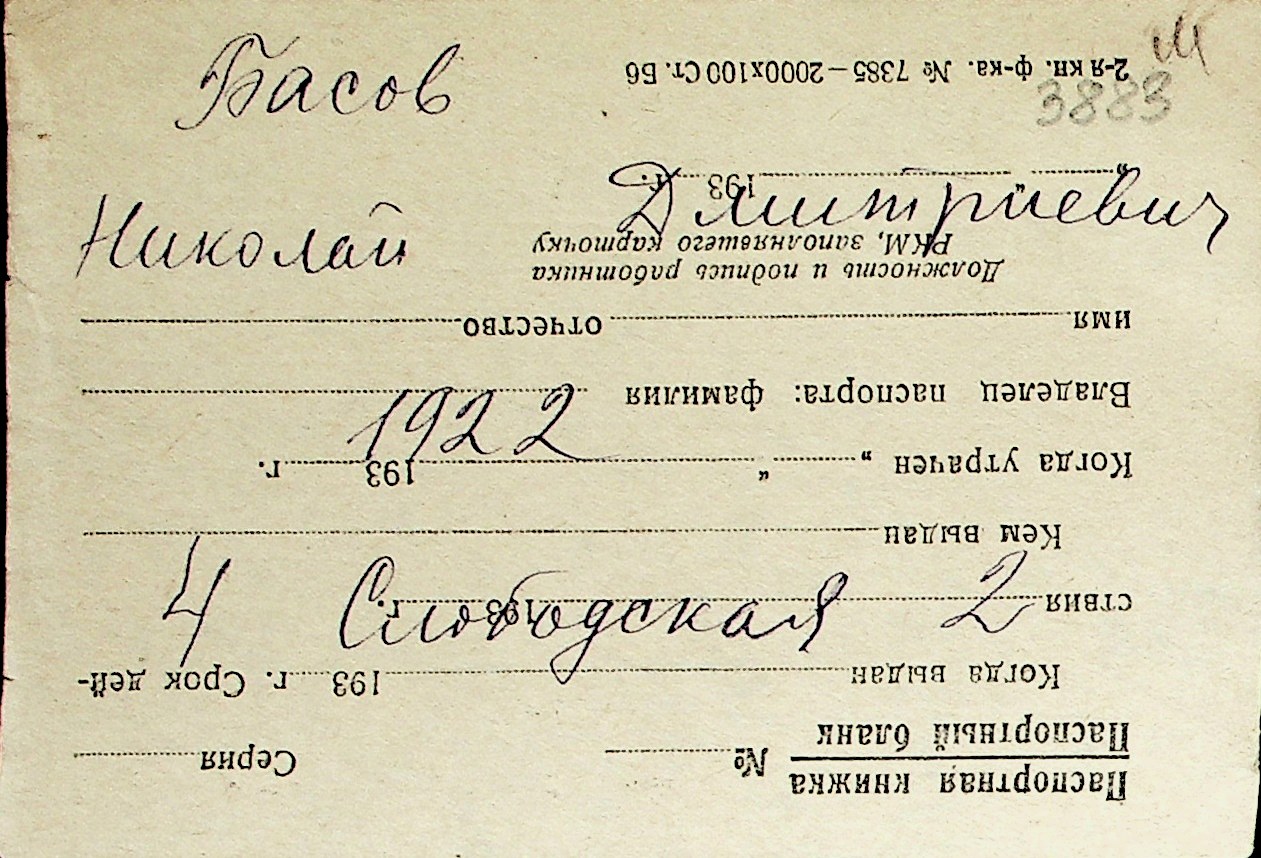 Басов
3883
Николай Дмитриевич
1922
4 Слободская 2
Паспортная книжка
Паспортный бланк № Серия
Когда выдан 193 г. Срок дей-
ствия 193 г.
Кем выдан
Когда утрачен „ “ 193 г.
Владелец паспорта: фамилия
имя отчество
Должность и подпись работника
РКМ, заполнявшего карточку
„ “ 193 г.
2-я кн. ф-ка. № 7385—2000х100 Ст. Бб